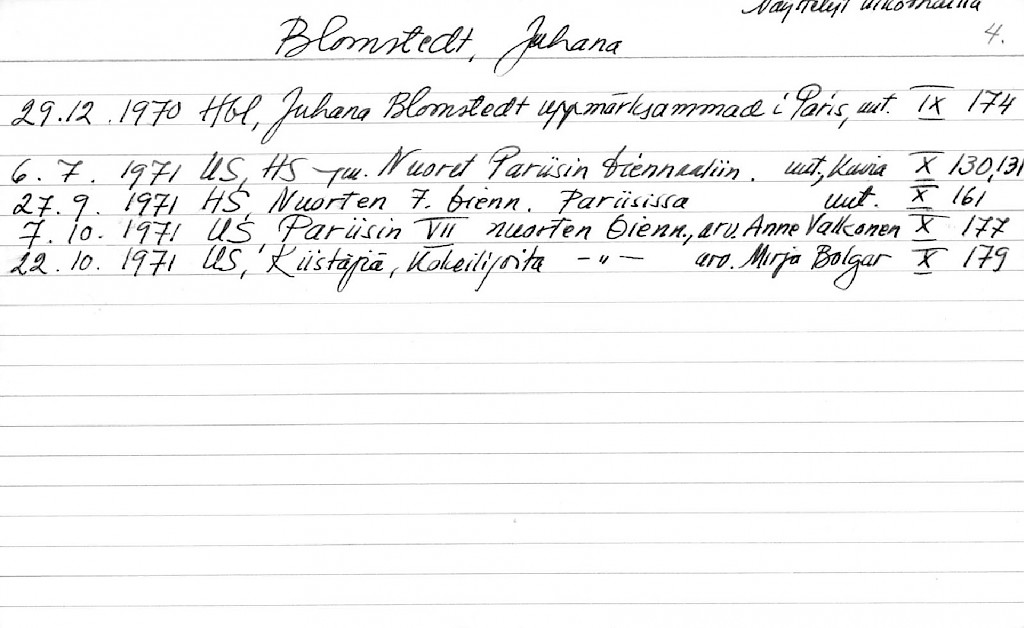 Näyttelyt ulkomailla
4.
Blomstedt, Juhana
29.12.1970 Hbl, Juhana Blomstedt uppmärksammad i Paris, uut. IX 174
6. 7. 1971 US, HS ym. Nuoret Pariisin biennaaliin. uut., kuvia X 130,131
27. 9. 1971 HS, Nuorten 7. bienn. Pariisissa uut. X 161
7. 10. 1971 US, Pariisin VII nuorten bienn., arv. Anne Valkonen X 177
22. 10. 1971 US, Kiistäjiä, Kokeilijoita -"- arv. Mirja Bolgar X 179